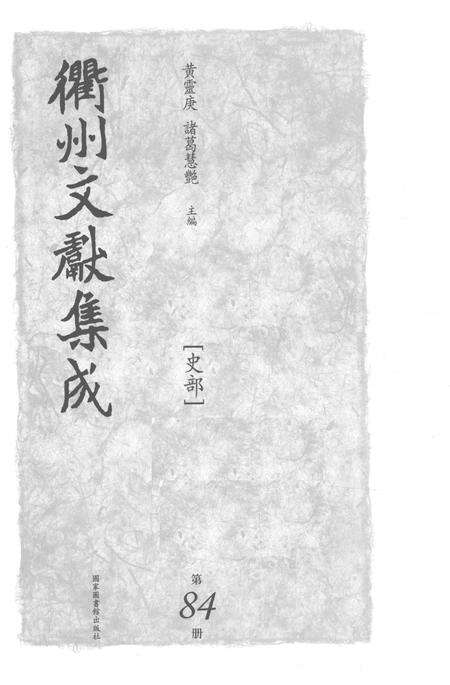 衢州文獻集成
黃靈庚 諸葛慧艷 主編
[史部]
第
84
册
國家圖書館出版社